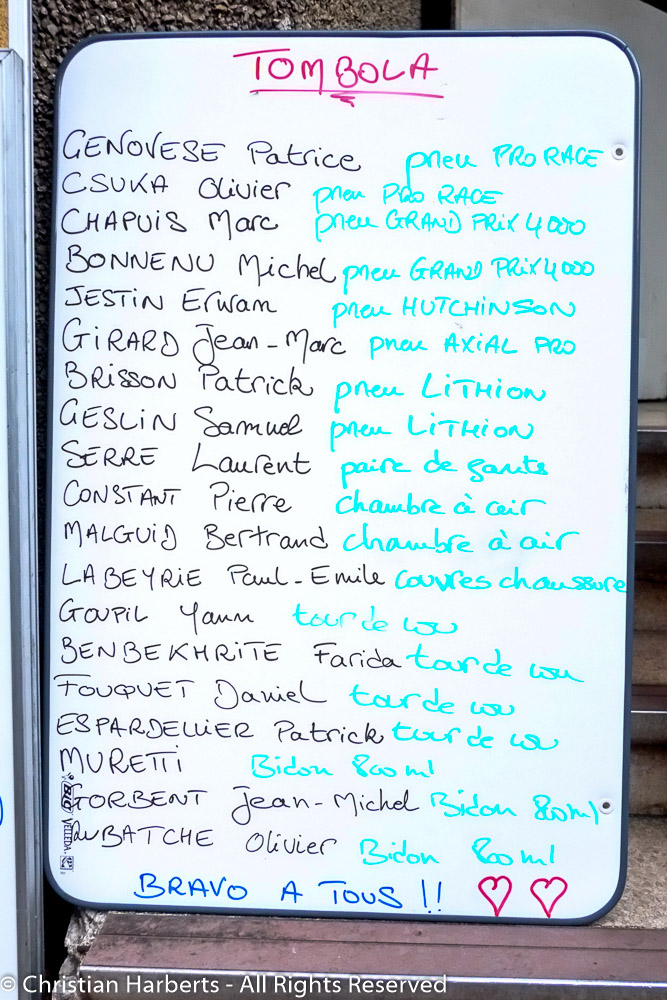 TOMBOLA
GENOVESE Patrice pneu PRO RACE
CSUKA Olivier pneu PRO RACE
CHAPUIS Marc pneu GRAND PRIX 4000
BONNENU Michel pneu GRAND PRIX 4000
JESTIN Erwam pneu HUTCHINSON
GIRARD Jean-Marc pneu AXIAL PRO
BRISSON Patrick pneu LITHION
GESLIN Samuel pneu LITHION
SERRE Laurent paire de gants
CONSTANT Pierre chambre à air
MALGUID Bertrand chambre à air
LABEYRIE Paul-Emile couvres chaussure
GOUPIL Yann tour de cou
BENBEKHRITE Farida tour de cou
FOUQUET Daniel tour de cou
ESPARDELLIER Patrick tour de cou
MURETTI Bidon 800 ml
GORBENT Jean-Michel Bidon 800 ml
BATCHE Olivier Bidon 800 ml
BIC VELLEDA
BRAVO A TOUS !!
© Christian Harberts - All Rights Reserved